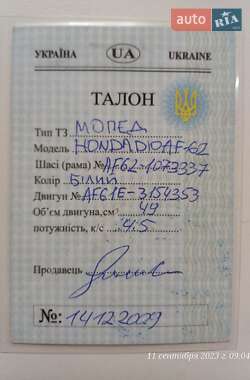 auto RIA
УКРАЇНА UA UKRAINE
ТАЛОН
Тип ТЗ МОПЕД
Модель HONDADIOAF-62
Шасі (рама) № AF62-1073337
Колір БІЛИЙ
Двигун № AF61E-3154353
Об'єм двигуна, см³ 49
потужність, к/с 4.5
Продавець
№: 14122009
11 сентября 2023 г. 09:04